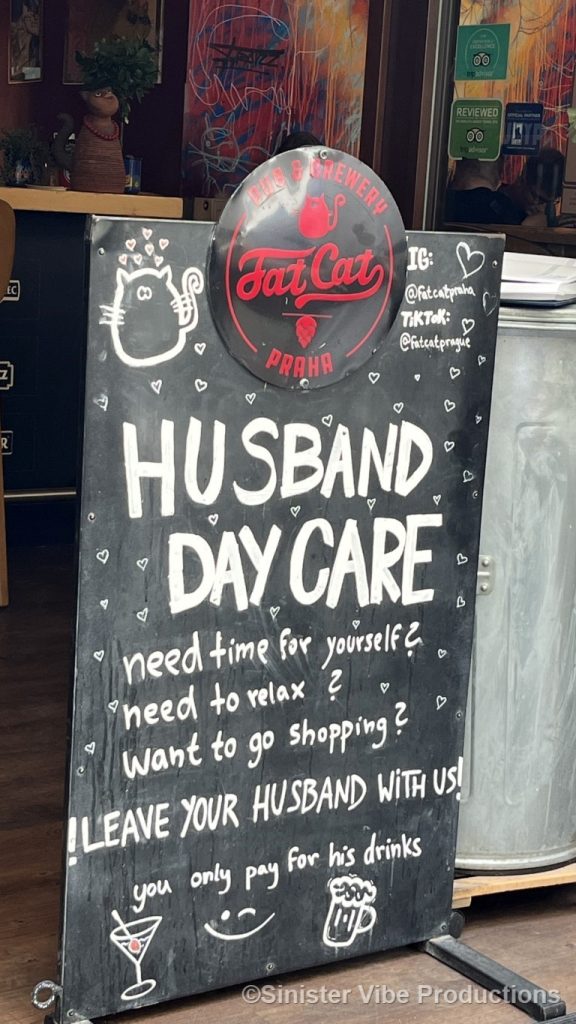 PUB & BREWERY
Fat Cat
PRAHA
IG:
@fatcatpraha
TikTok:
@fatcatprague
HUSBAND
DAY CARE
need time for yourself?
need to relax ?
want to go shopping?
!LEAVE YOUR HUSBAND WITH US!
you only pay for his drinks
REVIEWED
tripadvisor
©Sinister Vibe Productions